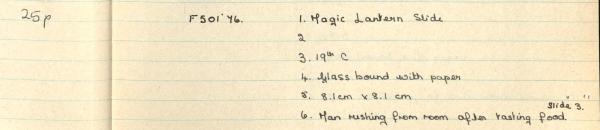 25p
FS01'46.
1. Magic Lantern Slide
2
3. 19th C
4. Glass bound with paper
5. 8.1cm x 8.1 cm
"Slide 3."
6. Man rushing from room after tasting food.